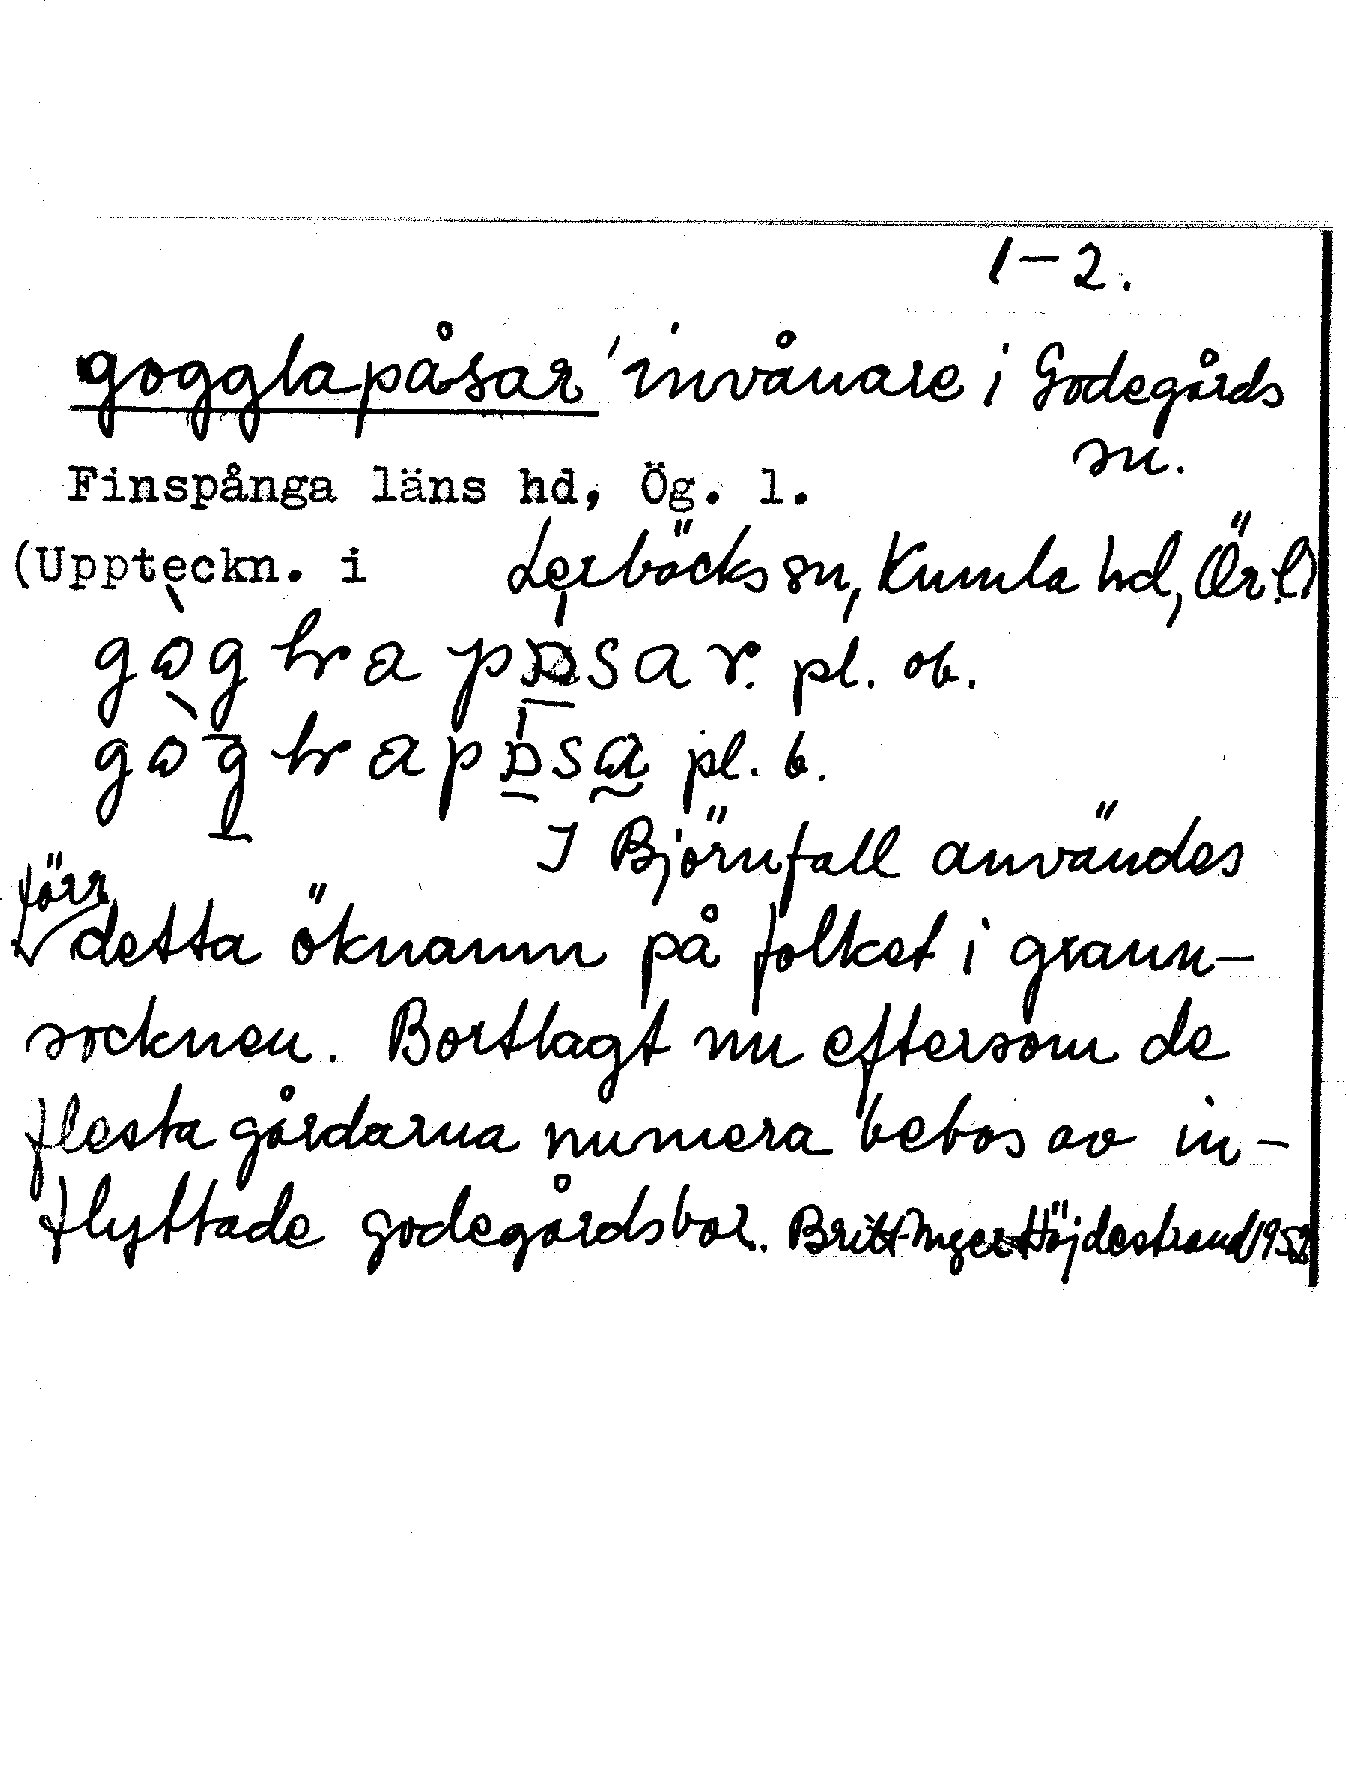 1-2.
gogglapåsar 'invånare i Godegårds
sn.
Finspånga läns hd, Ög. l.
(Uppteckn. i Lerbäcks sn, Kumla hd, Ör. l)
pl. ob.
pl. b.
I Björnfall användes
förr
detta öknamn på folket i grann-
socknen. Bortlagt nu eftersom de
flesta gårdarna numera bebos av in-
flyttade godegårdsbor. Britt-Inger Höjdestrand